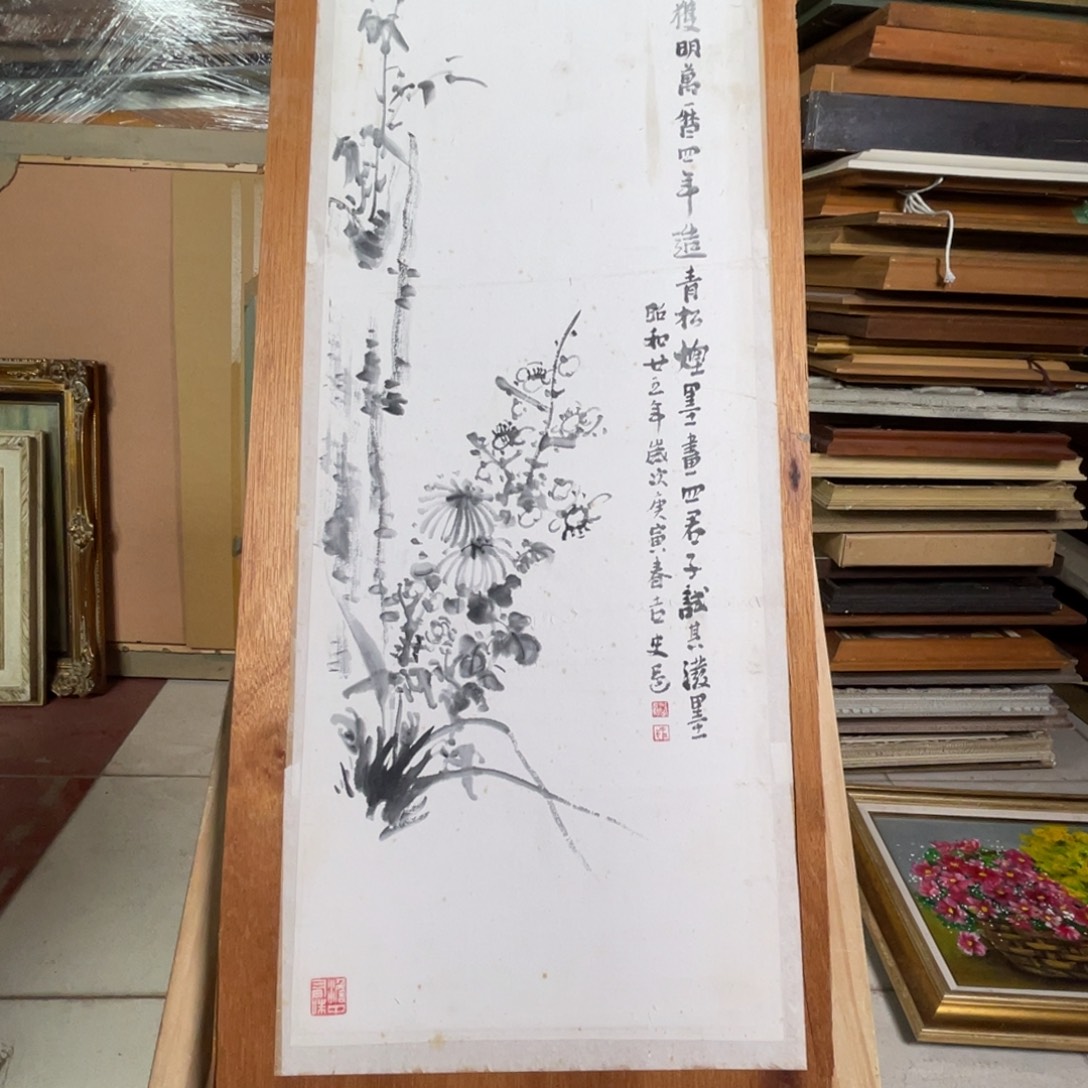 獲明萬曆四年造青松煙墨畫四君子試其潑墨
昭和廿五年歲次庚寅春古史